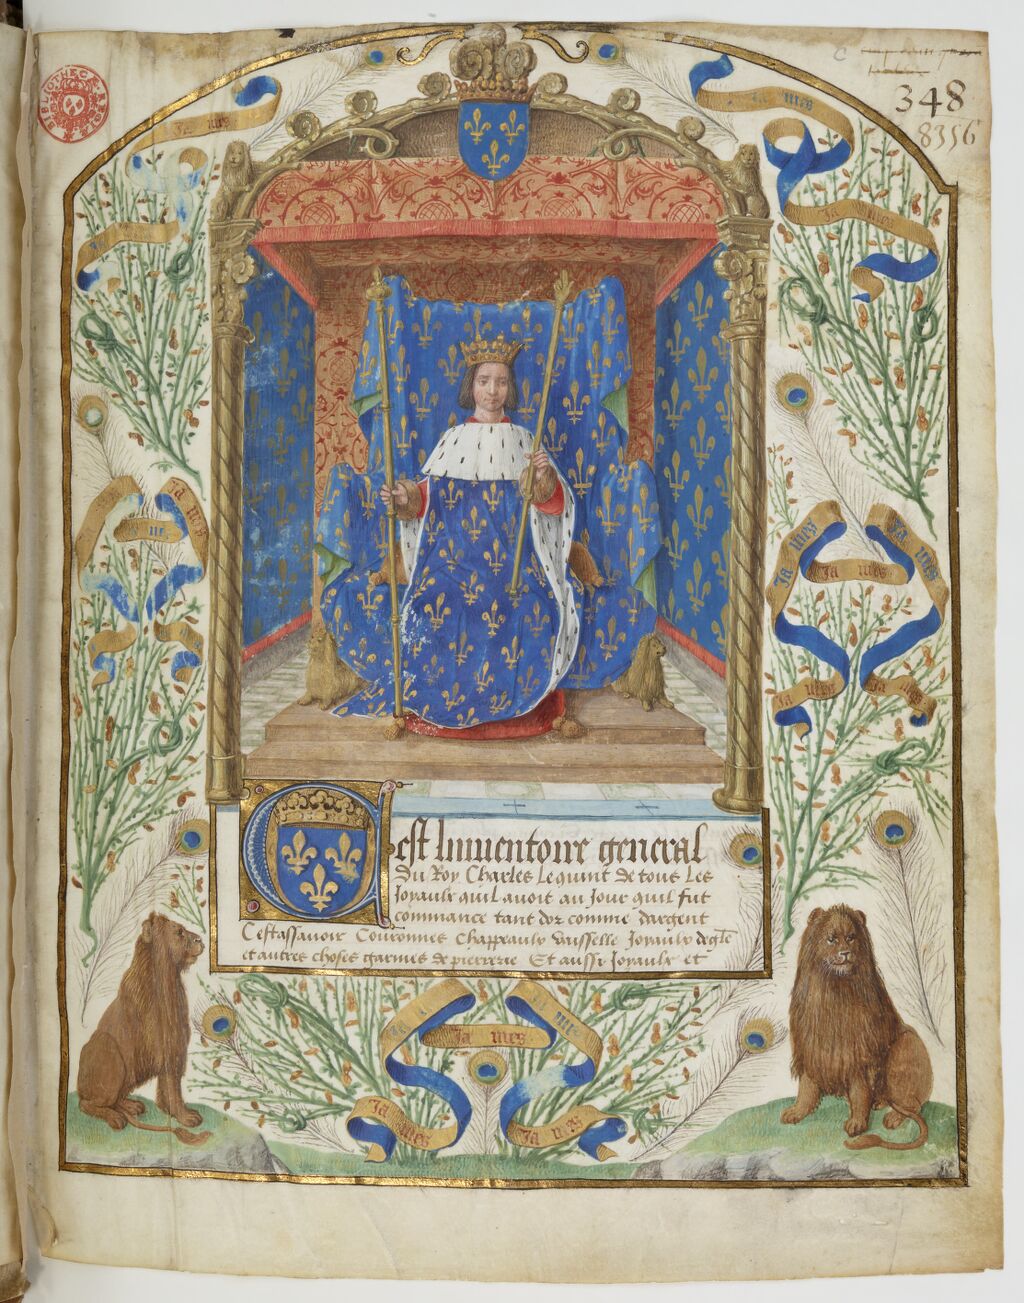 BIBLIOTHECAE REGIAE
348
8356
Ja mes
Ja mes
Ja mes
Ja mes
Ja mes
Ja mes
Ja mes
Ja mes
Ja mes
Ja mes
Cest Linuentoire general
Du Roy Charles Lequint de tous Les
Joyaulx quil auoit au Jour quil fut
commance tant dor comme dargent
Cestassauoir Couronnes Chappeaulx vaisselle Joyaulx degle
et autres choses garnies de pierrerie Et aussi Joyaulx et
Ja mes
Ja mes
Ja mes